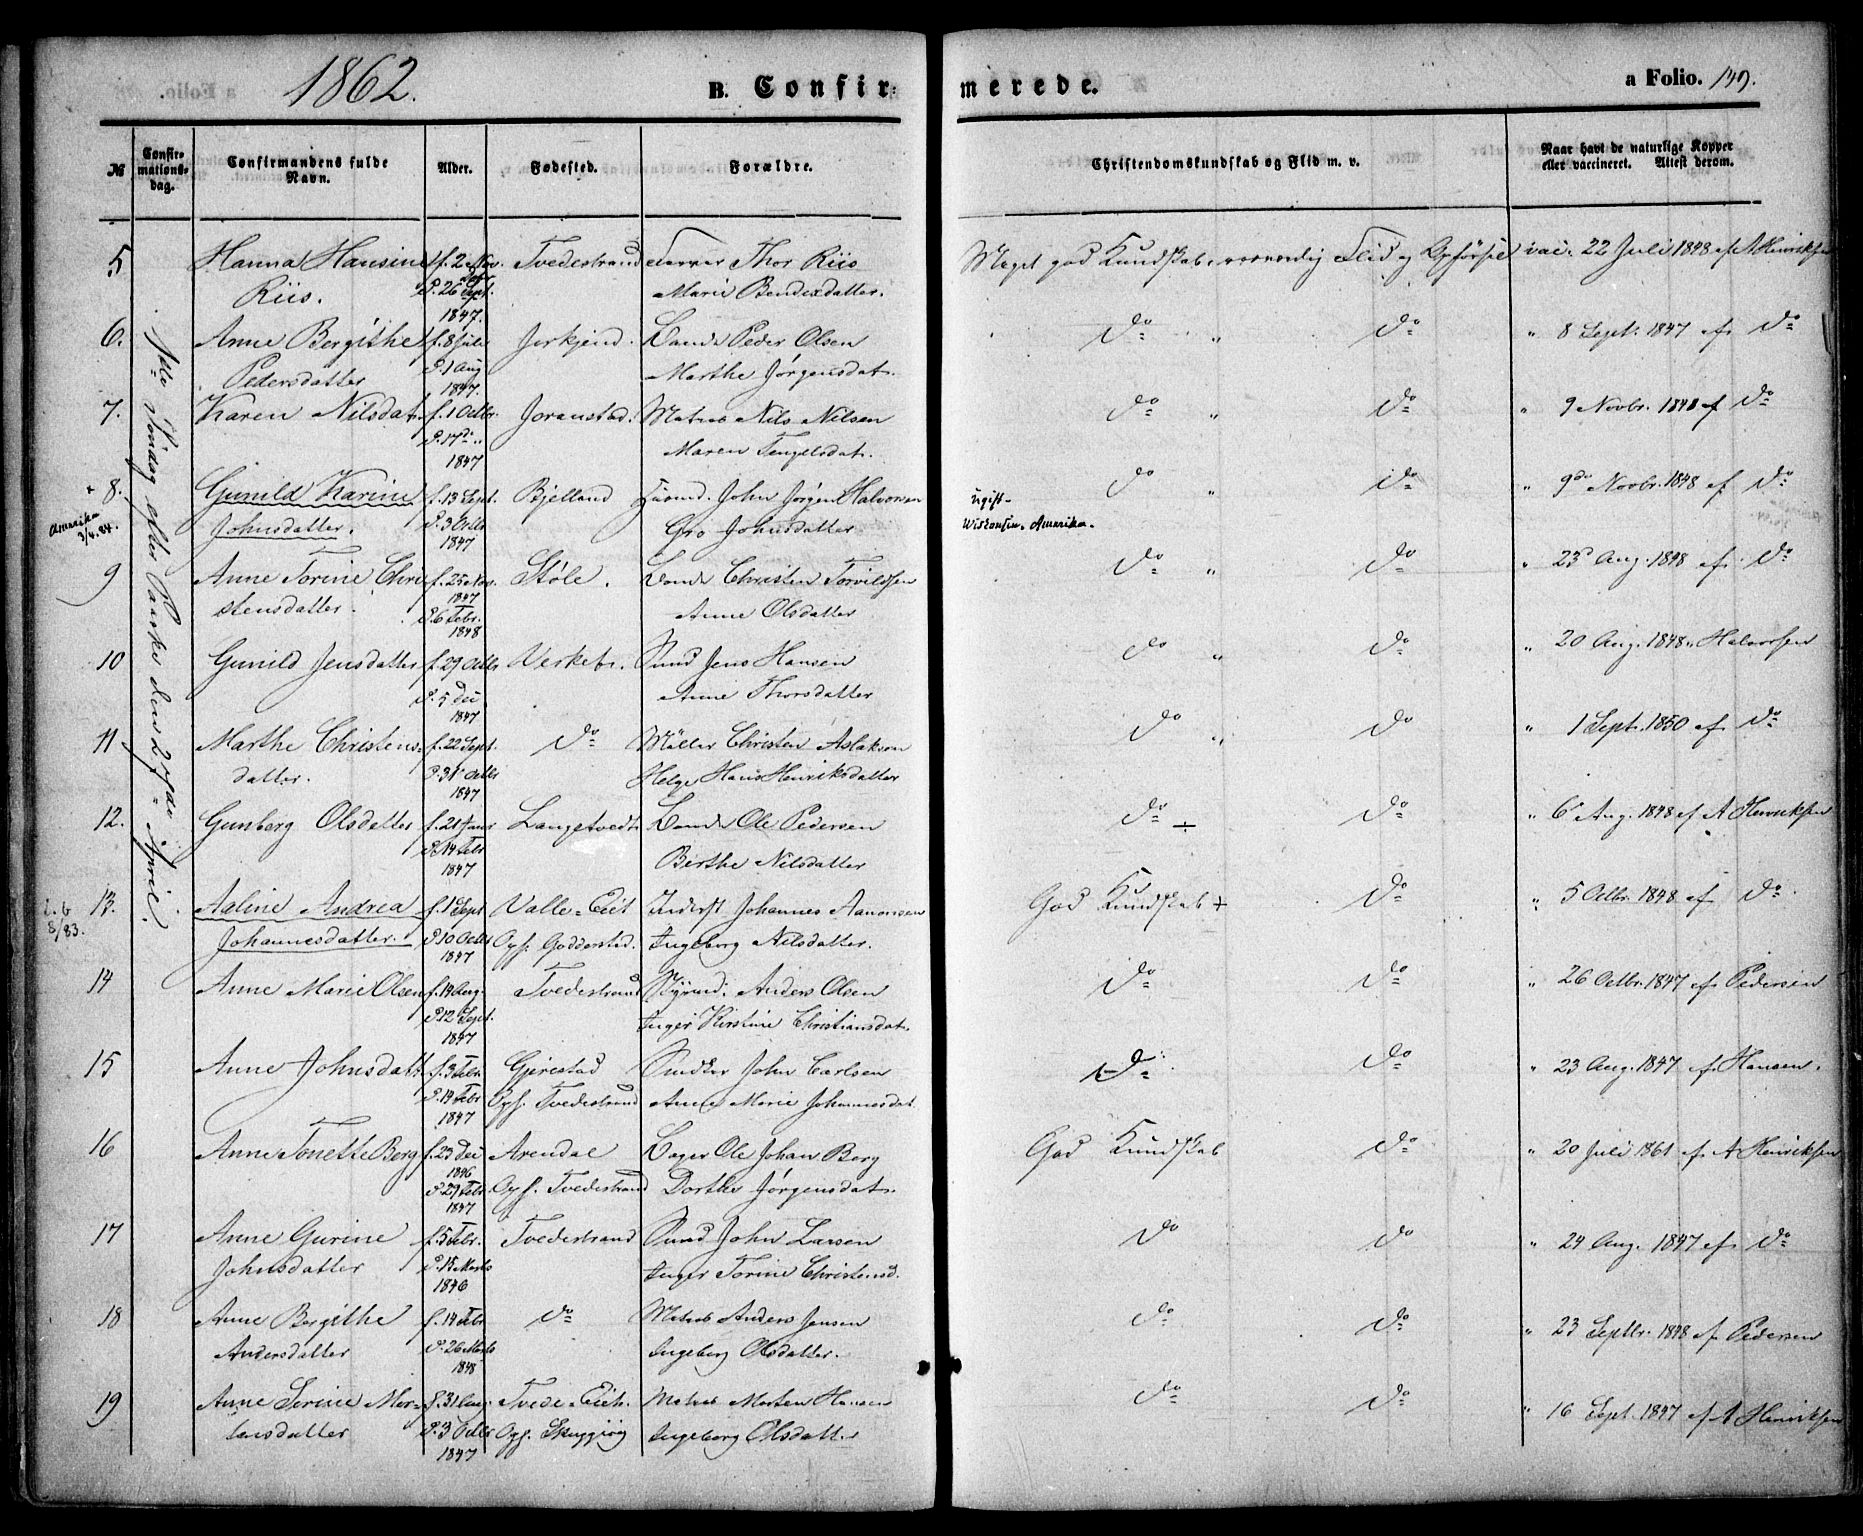 1862.
B. Confirmerede.
a Folio. 149.
№
Confirmationsdag.
Confirmandens fulde Navn.
Alder.
Fødested.
Forældre.
Christendomskundskab og Flid m. v.
Naar havt de naturlige Kopper eller vaccineret. Attest derom.
Søndag efter Paaske den 27de April.
5 Hanna Hansine f. 2 Nov. Tvedestrand Thor Riis Meget god Kundskab, Flid og Opførsel vac. 22 Juli 1848 af A Henriksen
Riis. 26 Sept. 1847. Marie Bendixdatter.
6. Anne Bergithe f. 8 Juli Peder Olsen do " do " 8 Sept. 1847 af do
Pedersdatter 1 Aug 1847. Marthe Jørgensdat.
7. Karen Nilsdat. f. 1 Octbr. Joranstad. Matros Nils Nilsen do " do " 9 Novbr. 1848 af do
17 " 1847 Maren Tengelsdat.
+ 8. Gunild Karine f. 13 Sept. Bjelland John Jørgen Halvorsen do " do " 9de Novbr. 1848 af do
Amerika 3/4.84. Johnsdatter. 3 Octbr 1847 Gro Johnsdatter ugift - Wiskonsin. Amerika.
9 Anne Torine Chri f. 25 Nov. 1847 Støle. Christen Torvildsen do " do " 23 Aug. 1848 af do
stensdatter. 6 Febr. 1848 Anne Olsdatter
10 Gunild Jensdatter f. 29 Octbr Verket. Jens Hansen do " do " 20 Aug. 1848 " Halvorsen
5 Dec 1847 Anne Thorsdatter
11 Marthe Christens f. 22 Sept. do Møller Christen Aslaksen do " do " 1 Sept. 1850 af do
datter. 31 Octbr 1847 Helge Hans Henriksdatter
12. Gunberg Olsdatter f. 21 Janr Langetvedt Ole Pedersen do ÷ do " 6 Aug. 1848 af A Henriksen
14 Febr 1847 Birthe Nilsdatter
13. Aaline Andrea f. 1 Sept Valle-Eiet Inderst Johannes Aanonsen God Kundskab + do " 5 Octbr. 1848 af do
3/83. Johannesdatter. 10 Octbr 1847 Opf. Godderstad. Ingeborg Nilsdatter.
14 Anne Marie Olsen f. 14 Aug. Tvedestrand Anders Olsen do do " 26 Octbr. 1847 af Pedersen
12 Sept. 1847 Inger Kirstine Christiansdat.
15 Anne Johnsdatt f. 3 Febr. Gjerestad John Carlsen do do " 23 Aug. 1847 af Hansen.
14 Febr 1847 Opf. Tvedestrand Anne Marie Johannesdat.
16 Anne Tonette Berg f. 23 Dec 1846 Arendal Ole Johan Berg God Kundskab do " 20 Juli 1861 af A Henriksen
29 Febr. 1847 Opf. Tvedestrand Dorthe Jørgensdat.
17 Anne Gurine f. 5 Febr. Tvedestrand John Larsen do do " 24 Aug. 1847 af do
Johnsdatter 15 Marts 1846 Inger Torine Christensd.
18 Anne Bergithe f. 14 Febr do Matros Anders Jensen do do " 23 Septbr. 1848 af Pedersen
Andersdatter 26 Marts 1848 Ingeborg Olsdatter.
19 Anne Serine Mor- f. 31 Aug. Tvede-Eiet. Matros Morten Hansen do do " 16 Sept. 1847 af A Henriksen
tensdatter 3 Octbr 1847 Opf. Skuggevig Ingeborg Olsdatter